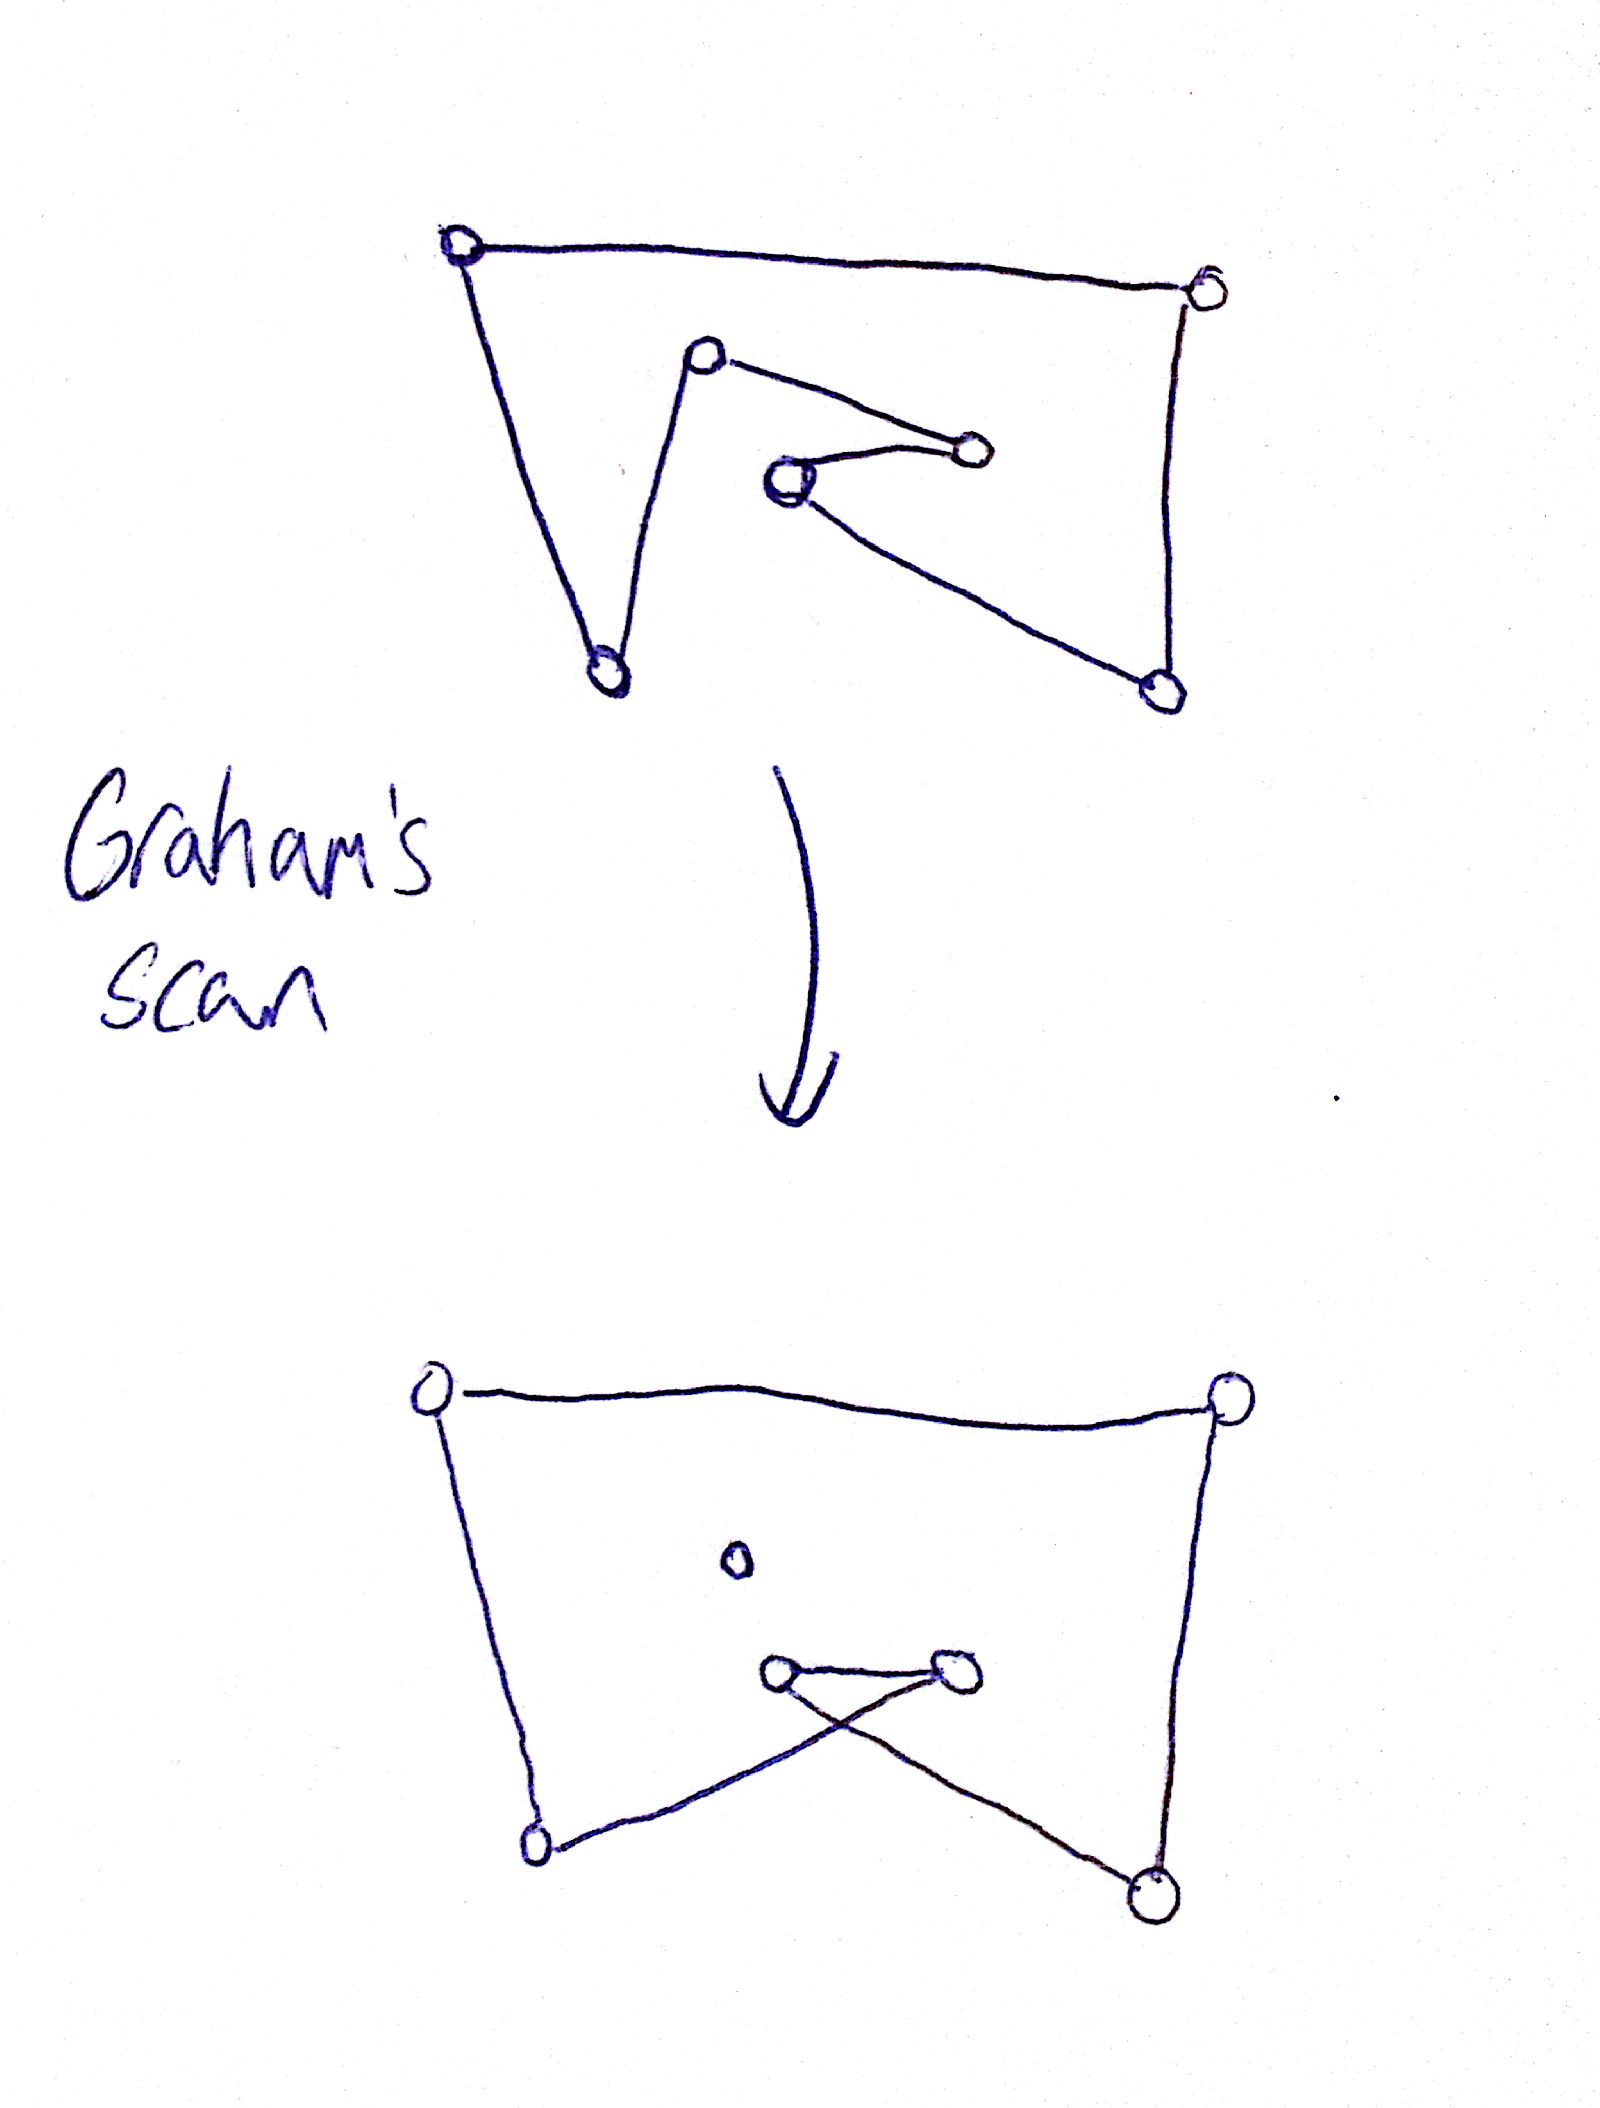 Graham's
scan